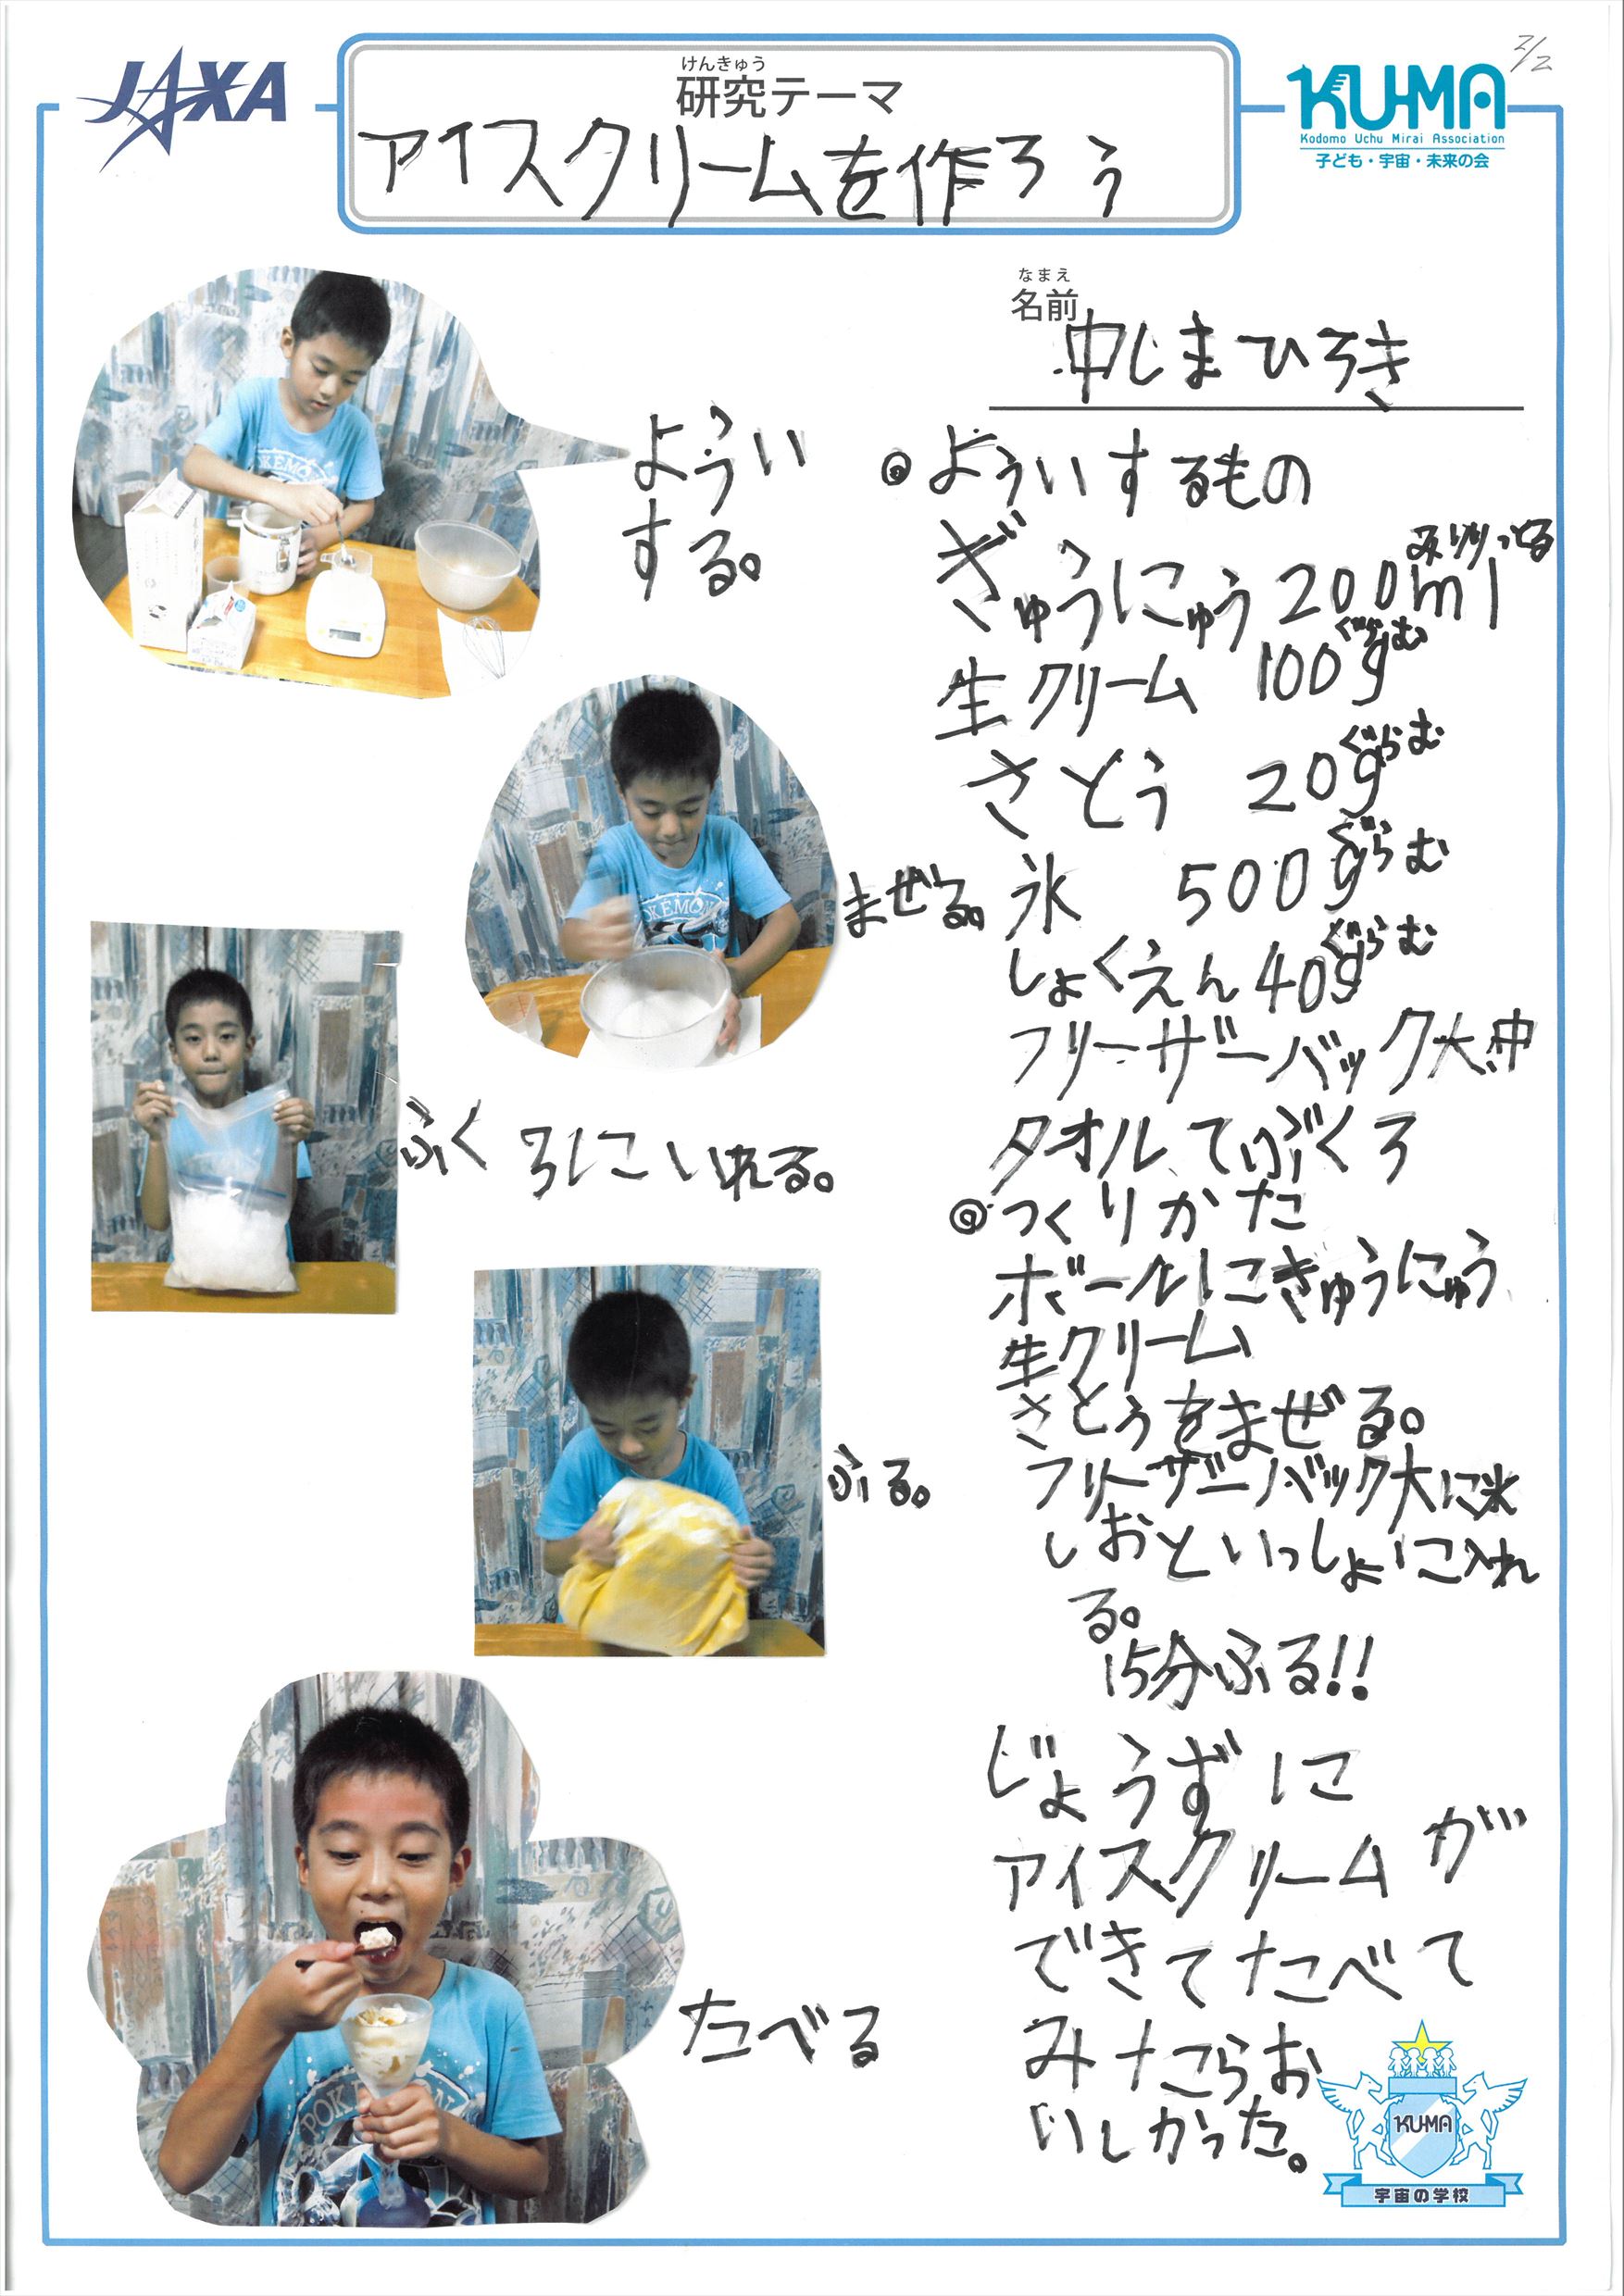 JAXA
けんきゅう
研究テーマ
アイスクリームを作ろう
KUMA
Kodomo Uchu Mirai Association
子ども・宇宙・未来の会
2/2
なまえ
名前
中しまひろき
ようい
する。
まぜる。
ふくろにいれる。
ふる。
たべる
◎よういするもの
ぎゅうにゅう200ml
みりりっとる
生クリーム 100g
ぐらむ
さとう 20g
ぐらむ
氷 500g
ぐらむ
しょくえん40g
ぐらむ
フリーザーバック大中
タオル、てぶくろ
◎つくりかた
ボールにぎゅうにゅう
生クリーム
さとうをまぜる。
フリーザーバック大に氷
しおといっしょに入れ
る。
15分ふる!!
じょうずに
アイスクリームが
できてたべて
みたらお
いしかった。
POKÉMON
POKÉMON
KUMA
宇宙の学校